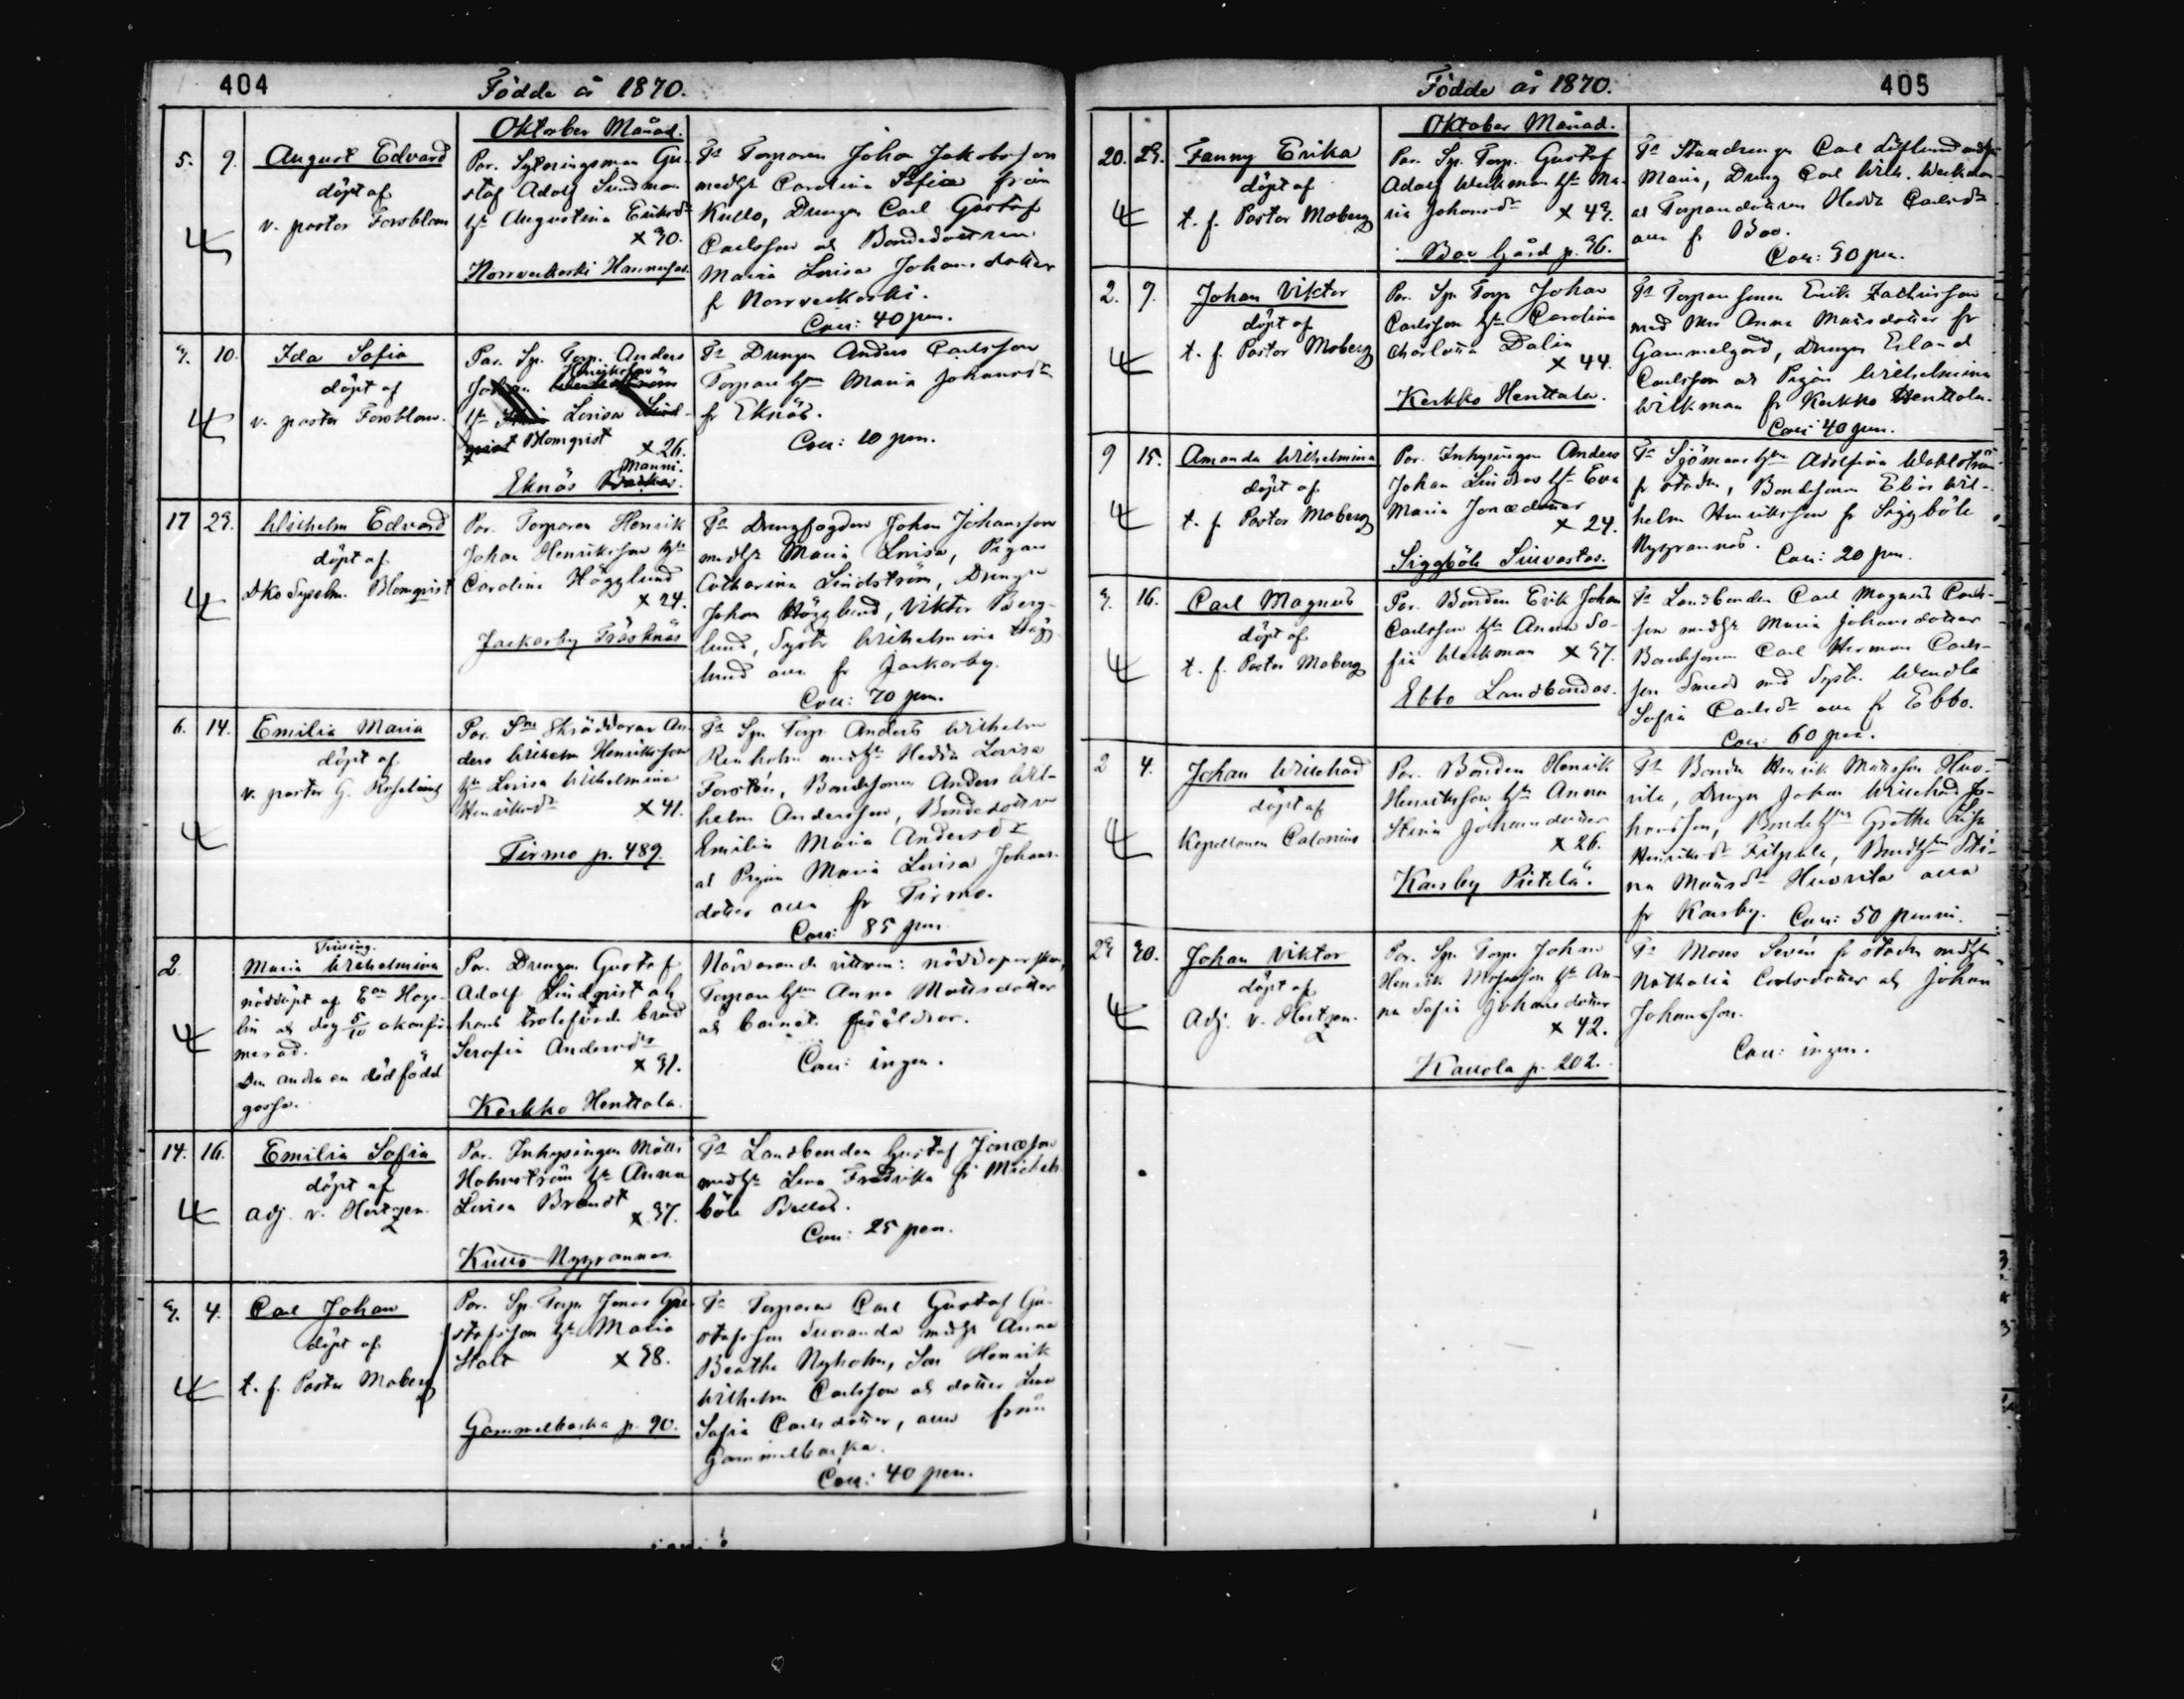 404
Födde år 1870.
Oktober Månad.
5. 9. August Edvard
döpt af
v. pastor Forsblom
Par. Syteringsman Gu-
staf Adolf Sundman
hu Augustina Eriksdr
x 30.
Norrveckoski Hannusas.
Fa Torparen Johan Jakobsson
medhu Carolina Sofia från
Kullo, Drengen Carl Gustaf
Carlsson och Bondedottren
Maria Lovisa Johansdotter
f Norrveckoski.
Coll: 40 pen.
3. 10. Ida Sofia
döpt af
v. pastor Forsblom.
Par. Sp. Torp. Anders
Johan Henriksson
hu Lovisa
Blomqvist x 26.
Manni.
Eknäs
Fa Drengen Anders Carlsson
Torpare hun Maria Johansdr
fr Eknäs.
Coll: 10 pen.
17 23. Wilhelm Edvard
döpt af
Blomqvist
Par. Torparen Henrik
Johan Henriksson hu
Carolina Högglund
x 24.
Jackarby Träsknäs
Fa Drengfogden Johan Johansson
medhu Maria Lovisa, Pigan
Catharina Lindström, Drengen
Johan Högglund, Viktor Berg-
lund, Systr Wilhelmina Högg-
lund alla fr Jackarby.
Coll: 70 pen.
6. 14. Emilia Maria
döpt af
v. pastor G. Roschier
Par. Skräddaren An-
ders Wilhelm Henriksson
hu Lovisa Wilhelmina
Henriksdr x 41.
Tirmo p. 489.
Fa Sp. Torp. Anders Wilhelm
Renholm medhu Hedda Lovisa
Forstén, Bondesonen Anders Wil-
helm Andersson, Bondedottren
Emilia Maria Andersdr
och Pigan Maria Lovisa Johans-
dotter alla fr Tirmo.
Coll: 85 pen.
2. Tvilling.
Maria Wilhelmina
nöddöpt af
lin och dog 5/10 okonfir-
merad.
Den andra en dödfödd
gosse.
Par. Drengen Gustaf
Adolf Lindqvist och
hans trolofvade brud
Serafia Andersdr
x 31.
Kerkko Henttala.
Närvarande vittnen: nöddöperskan,
Torpare hun Anna Mattsdotter
och barnets föräldrar.
Coll: ingen.
14. 16. Emilia Sofia
döpt af
Adj. v. Hertzen.
Par. Inhysingen Matts
Holmström hu Anna
Lovisa Brandt
x 37.
Kullo Nygrannas
Fa Landbonden Gustaf Jonasson
medhu Lena Fredrika fr Mickels-
böle
Coll: 25 pen.
3. 4. Carl Johan
döpt af
t. f. Pastor Moberg
Par. Sp. Torp. Jonas Gu-
stafsson hu Maria
Stolt x 38.
Gammelbacka p. 90.
Fa Torparen Carl Gustaf Gu-
stafsson Suoranda medhu Anna
Beatha Nyholm, Son Henrik
Wilhelm Carlsson och dotter Lena
Sofia Carlsdotter, alla från
Gammelbacka.
Coll: 40 pen.
Födde år 1870.
405
Oktober Månad.
20. 23. Fanny Erika
döpt af
t. f. Pastor Moberg
Par. Sp. Torp. Gustaf
Adolf Weckman hu Ma-
ria Johansdr x 43.
Boe Gård p. 36.
Fa Stalldrengen Carl Löflund medhu
Maria, Dreng Carl Wilh. Weckman
och Torparedottren Hedda Carlsdr
alla fr Boe.
Coll: 30 pen.
2. 9. Johan Viktor
döpt af
t. f. Pastor Moberg
Par. Sp. Torp. Johan
Carlsson hu Carolina
Charlotta Dalin
x 44.
Kerkko Henttala.
Fa Torparesonen Erik Zachrisson
med Mor Anna Mattsdotter fr
Gammelgård, Drengen Erland
Carlsson och Pigan Wilhelmina
Wilkman fr Kerkko Henttala.
Coll: 40 pen.
9 15. Amanda Wilhelmina
döpt af
t. f. Pastor Moberg
Par. Inhysingen Anders
Johan Lindros hu Eva
Maria Jonædotter
x 24.
Siggböle Sinvastas.
Fa Sjömans hun Adolfina Wahlström
fr staden, Bondesonen Elias Wil-
helm Henriksson fr Siggböle
Nygrannas. Coll: 20 pen.
3. 16. Carl Magnus
döpt af
t. f. Pastor Moberg
Par. Bonden Erik Johan
Carlsson hu Anna So-
fia Weckman x 37.
Ebbo Landbondas.
Fa Landbonden Carl Magnus Carls-
son medhu Maria Johansdotter
Bondesonen Carl Herman Carls-
son Smeds med Syst. Wendla
Sofia Carlsdr alla fr Ebbo.
Coll: 60 pen.
2 4. Johan Willehad
döpt af
Kapellanen Calonius
Par. Bonden Henrik
Henriksson hu Anna
Stina Johansdotter
x 26.
Karsby Pietilä.
Fa Bonden Henrik Mattsson Huo-
rila, Drengen Johan Willehad Jo-
hansson, Bondehun Gretha Lisa
Henriksdr Filppula, Bondhun Sti-
na Mattsdr Huorila alla
fr Karsby. Coll: 50 penni.
23 30. Johan Viktor
döpt af
Adj. v. Hertzen.
Par. Sp. Torp. Johan
Henrik Mosesson hu An-
na Sofia Johansdotter
x 42.
Kallola p. 202.
Fa Moses Sevén fr staden medhu
Nathalia Carlsdotter och Johan
Johansson.
Coll: ingen.